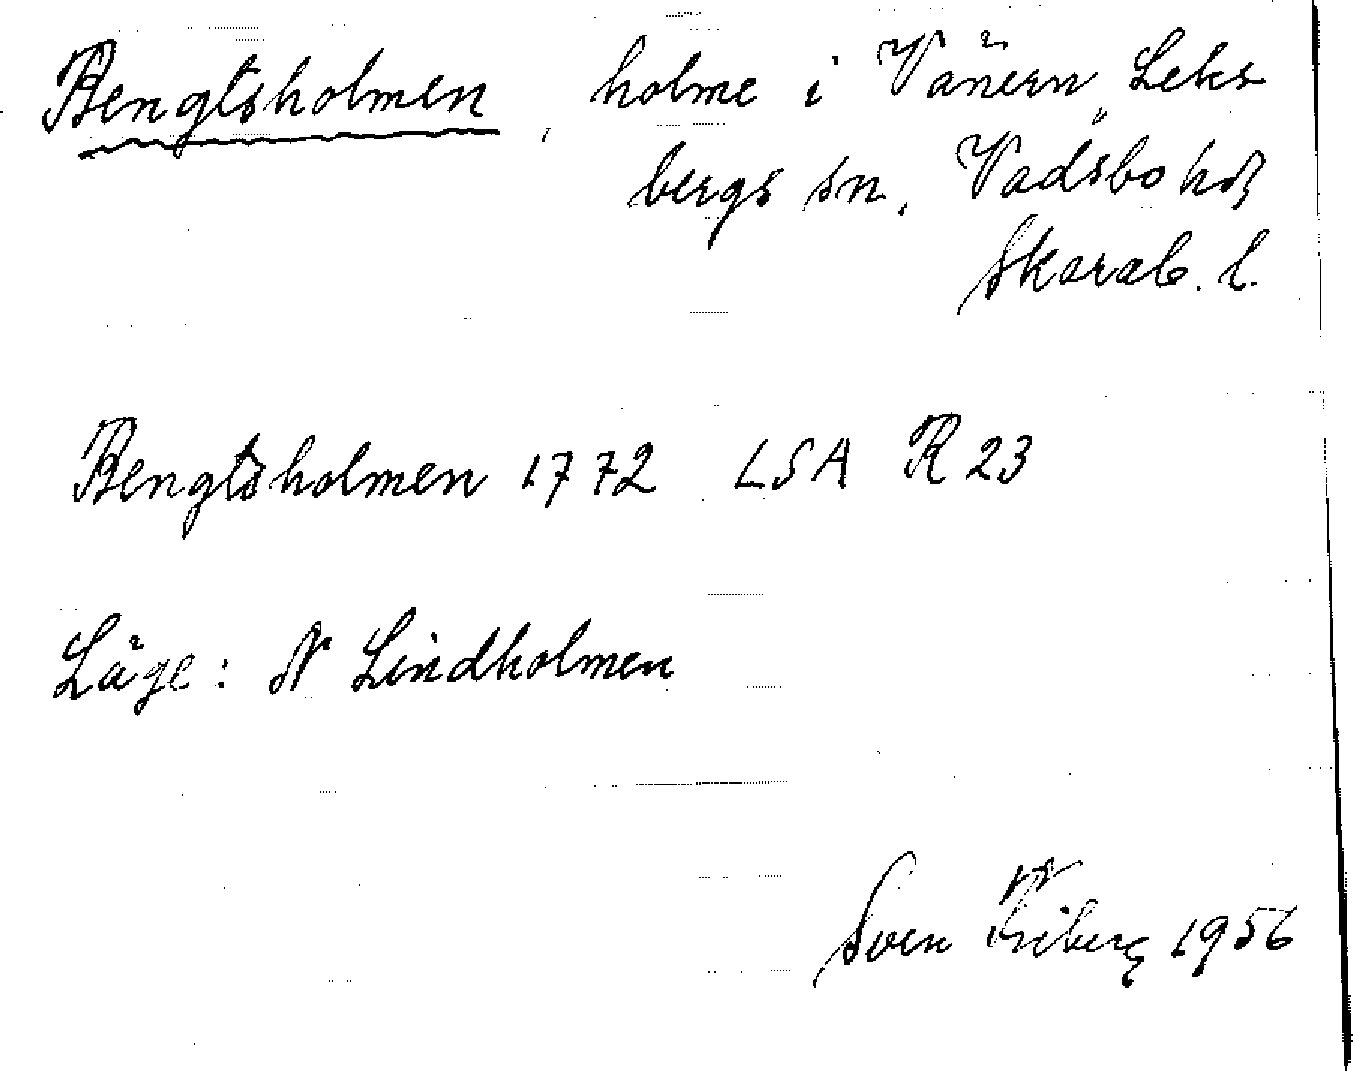 Bengtsholmen, holme i Vänern, Leks-
bergs sn, Vadsbo hd
Skarab. l.
Bengtsholmen 1772 LSA R 23
Läge: N Lindholmen
Sven Friberg 1956